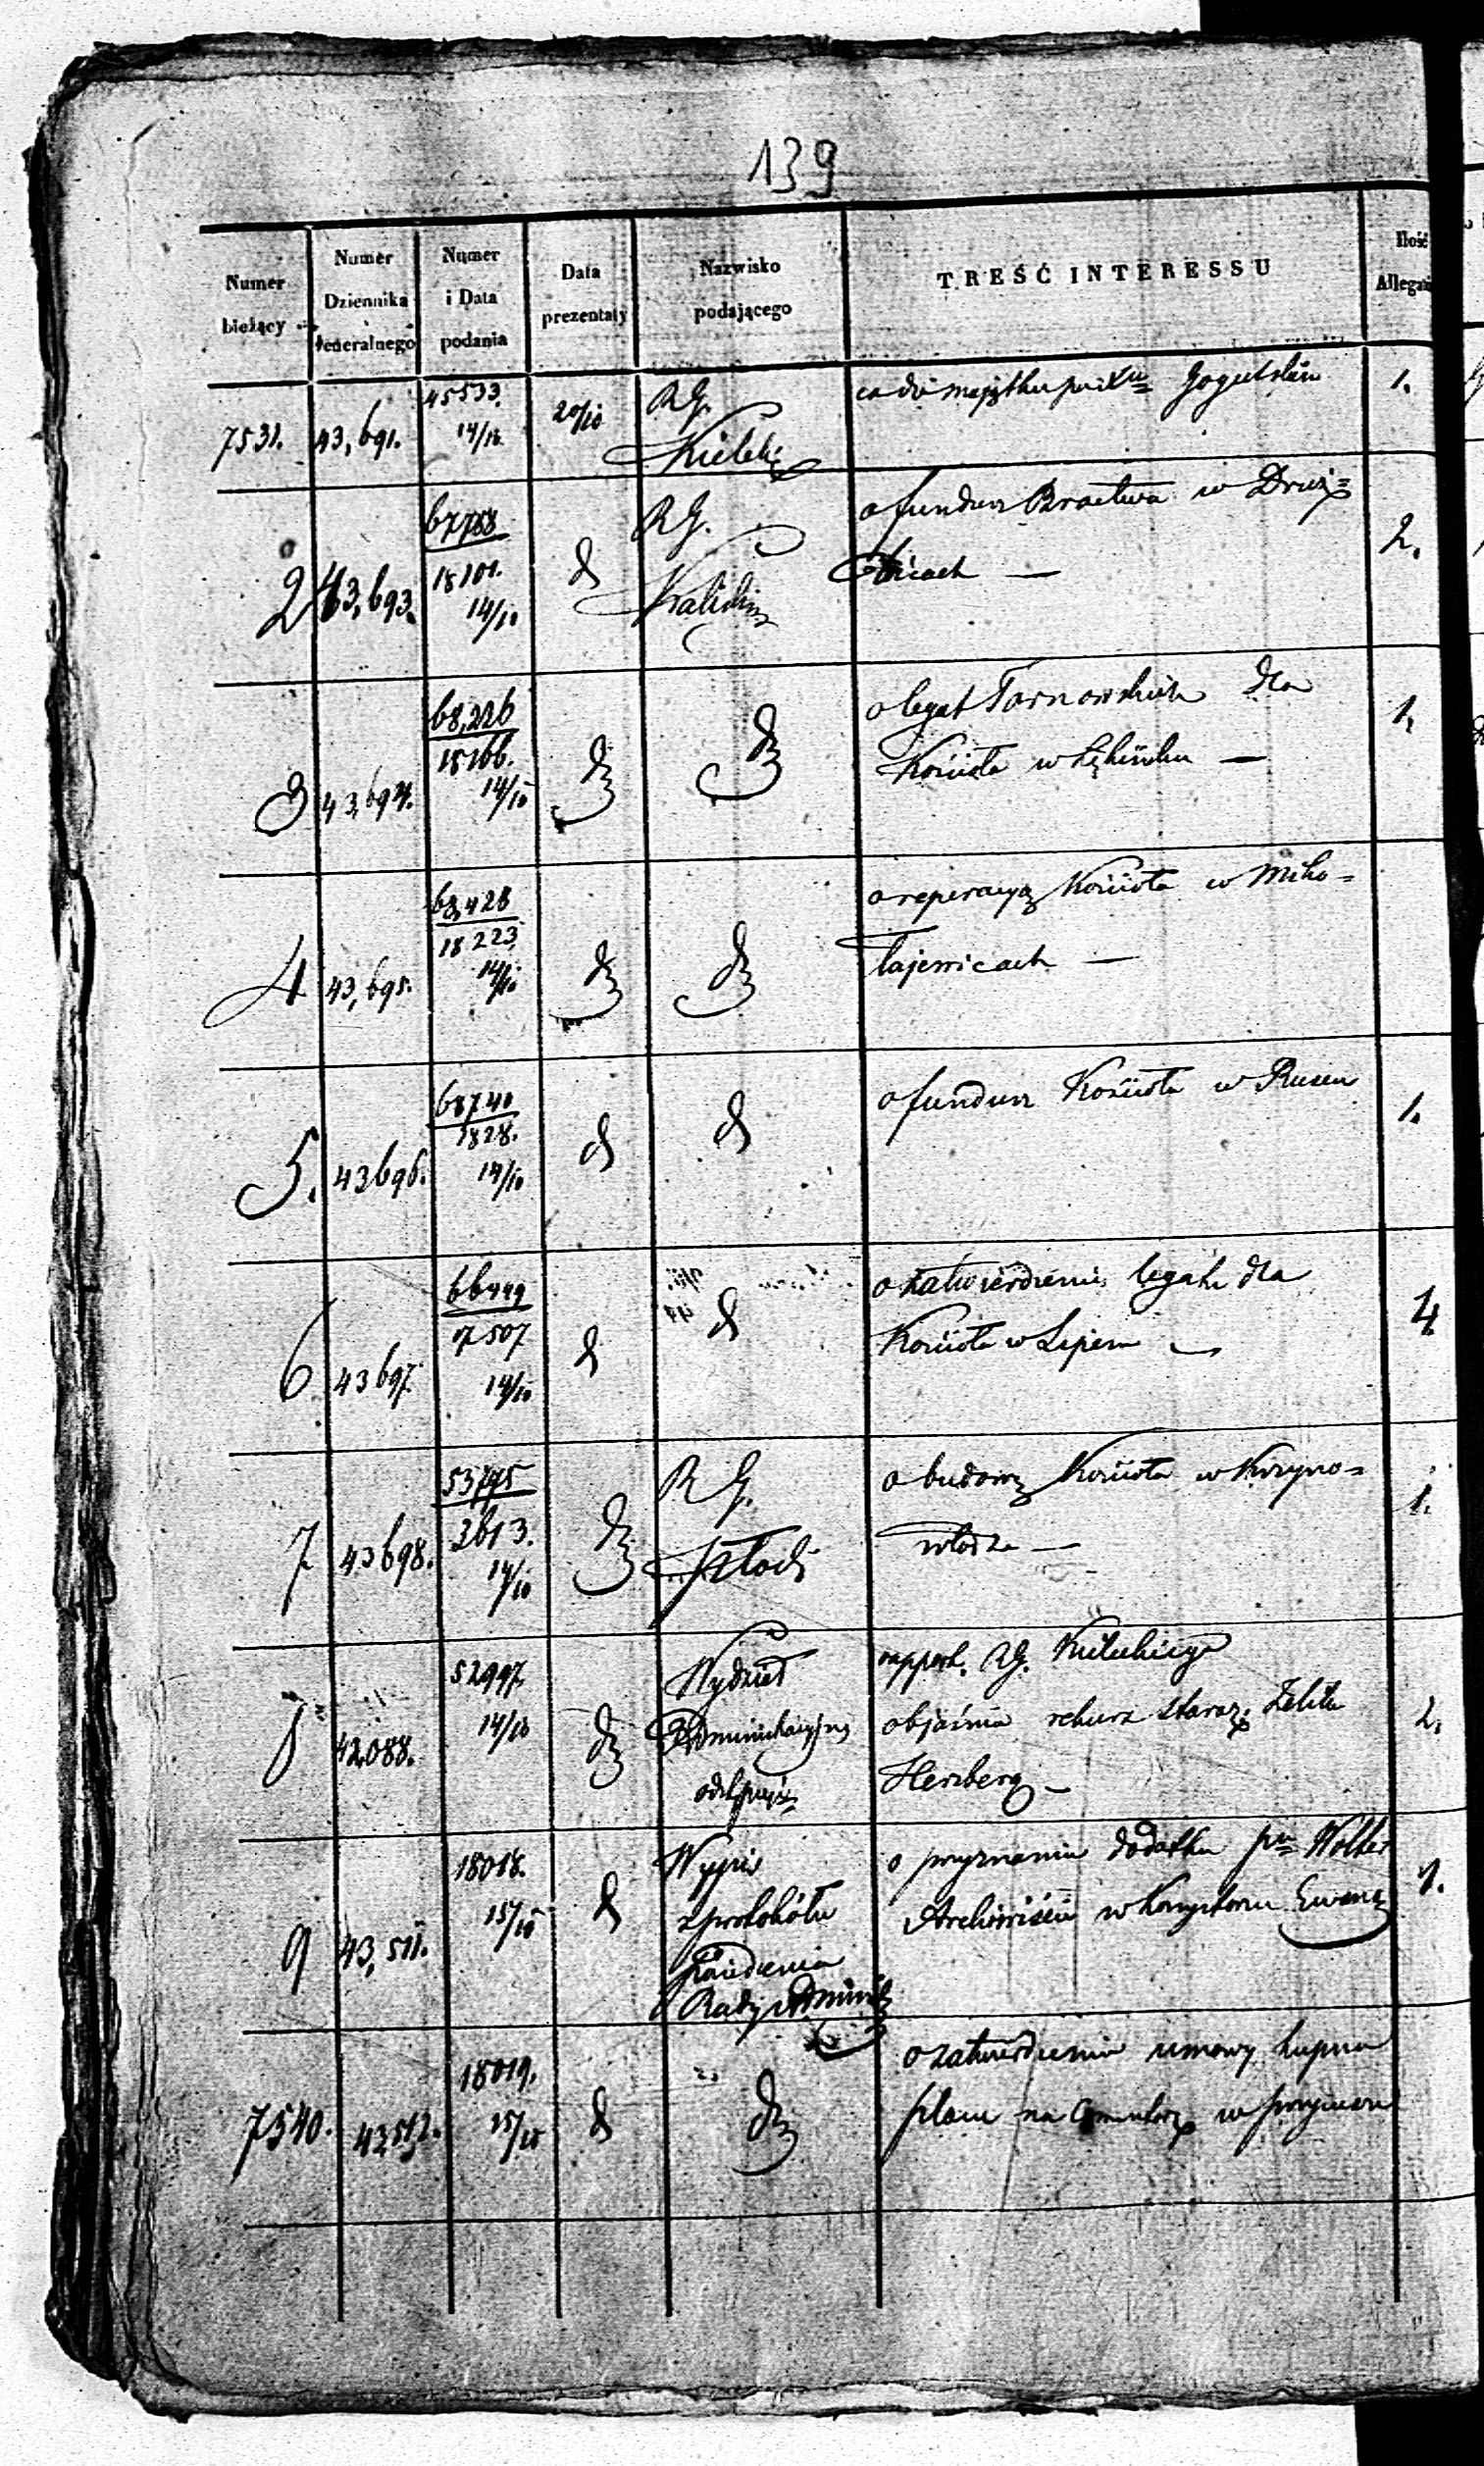 139
Numer bieżący
Numer Dziennika Jeneralnego
Numer i Data podania
Data prezentaty
Nazwisko podającego
TREŚĆ INTERESSU
Ilość Allegat
7531. 43,691. 45533. 14/10 20/10 RG. Kielck co do majątku po 1.
2 43,693. 67758 18101. 14/10 d RG. Kaliskie o fundusz Bractwa w Druż= bicach — 2.
3 43,694. 68,226 18166. 14/10 d d o legat Tarnowskich dla Kościoła w — 1.
4 43,695. 68,428 18223. 14/10 d d o reperacyą Kościoła w Miko= łajewicach —
5. 43696. 68740 1828. 14/10 d d o fundusz Kościoła w Ruscu 1.
6 43697. 66449 17507 14/10 d d o zatwierdzenie legatu dla Kościoła w Lipem — 4
7 43698. 53775 2613. 14/10 d RG. Płocki o budowę Kościoła w Krzyno= włodze — 1.
8 42088. 52997. 14/10 d Wydział Administracyjny rapport. RG. Kieleckiego objaśnia rekurs staroz. Herzberg — 2.
9 43,511. 18018. 15/10 d Wypis z protokółu Posiedzenia Rady Adminis o przyznanie dodatku pu Wolker Archiwiście w Konsystorzu Ewang 1.
7540. 43,512. 18019. 15/10 d d o zatwierdzenie umowy kupna placu na Cmentarz w